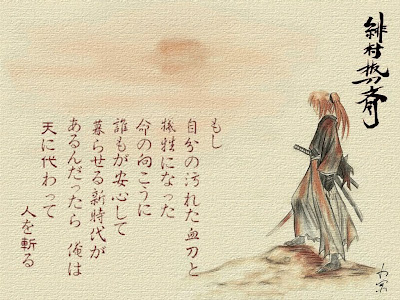 緋村抜刀斎
もし
自分の汚れた血刀と
犠牲になった
命の向こうに
誰もが安心して
暮らせる新時代が
あるんだったら 俺は
天に代わって
人を斬る